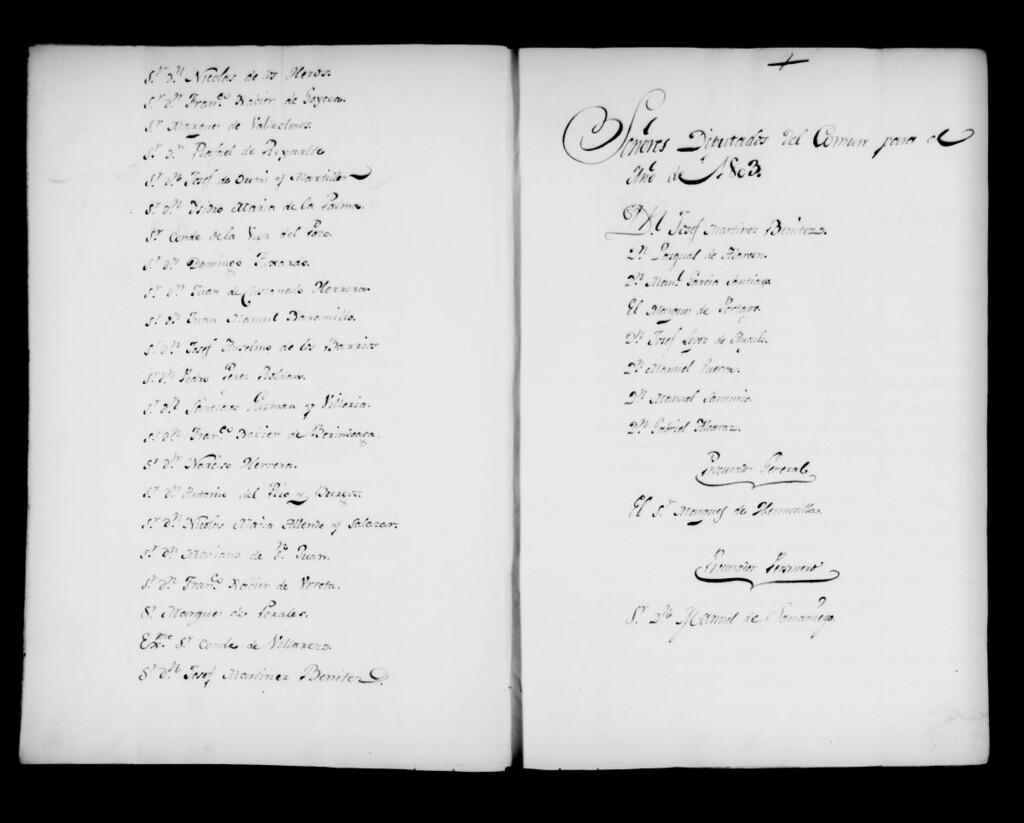 S.r D.n Nicolas de los Heros.
S.r D.n Fran.co Xabier de Goyeca.
S.r Marques de Valdelmos.
S.r D.n Rafael de Reynalte
S.r D.n Josef de y Martiller
S.r D.n Ysidro Maria de la Palma.
S.r Conde de la Vega del Pozo.
S.r D.n Domingo
S.r D.n Juan de Castanedo Herrera
S.r D.n Juan Manuel Baramillo.
S.r D.n Josef Anselmo de los Barrios
S.r D.n Pedro Perez Roldan.
S.r D.n Santiago Guzman y Villoria.
S.r D.n Fran.co Xabier de Berindoaga.
S.r D.n Narciso Herrera.
S.r D.n Antonio del Pico y Burgos.
S.r D.n Nicolas Maria Allende y Salazar.
S.r D.n Mariano de S.n Juan.
S.r D.n Fran.co Xabier de Urreta.
S.r Marques de Perales.
Ex.mo S.r Conde de Villarezo.
S.r D.n Josef Martinez Benitez.
Señores Diputados del Comun para el
Año de 1803.
D.n Josef Martinez Benitez.
D.n Pasqual de Alarcon.
D.n Man.l Garcia Santiago
El Marques de Portago.
D.n Josef Lopez de Angulo.
D.n Manuel Guerra.
D.n Manuel
D.n Gabriel Alcaraz.
Procurador General
El S.r Marques de Hermosilla.
Procurador Personero
S.r D.n Manuel de Samaniego.